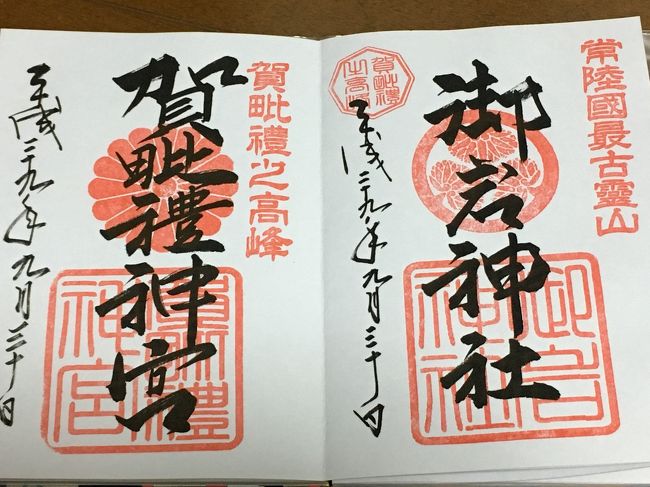 常陸國最古靈山
御岩神社
御岩神社
賀毗禮之高峰
平成二九年九月三十日
賀毗禮之高峰
賀毗禮神宮
賀毗禮神宮
平成二九年九月三十日